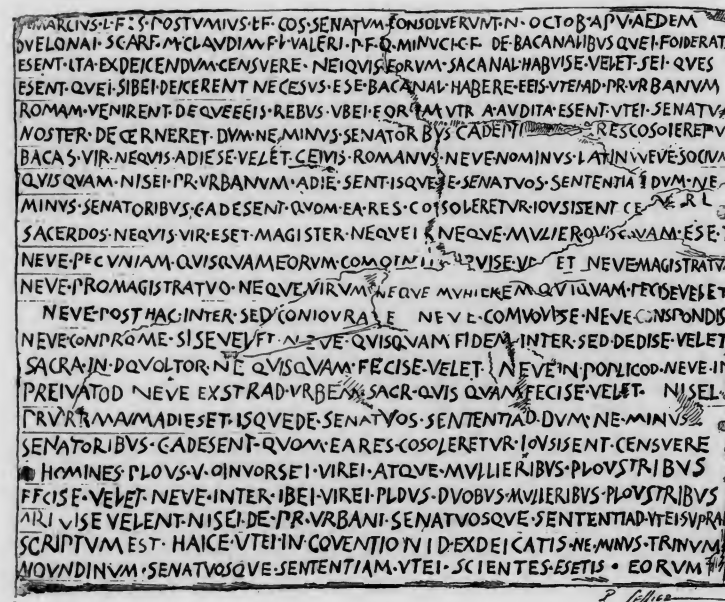 MARCIVS·L·F·S·POSTVMIVS·L·F·COS·SENATVM CONSOLVERVNT·N·OCTOB·APV·AEDEM
DVELONAI·SC·ARF·M·CLAVDI·M·F·L·VALERI·P·F·Q·MINVCI·C·F DE·BACANALIBVS·QVEI·FOIDERAT
ESENT·ITA·EXDEICENDVM·CENSVERE·NEIQVIS·EORVM·SACANAL·HABVISE·VELET·SEI·QVES
ESENT·QVEI·SIBEI·DEICERENT NECESVS·ESE·BACANAL·HABERE·EEIS·VTEI·AD·PR·VRBANVM
ROMAM·VENIRENT·DEQVEEEIS·REBVS·VBEI·EORVM VTR A·AVDITA·ESENT·VTEI·SENATV
NOSTER·DECERNERET·DVM·NE·MINVS·SENATORBVS CADE RES COSOLERETV
BACAS·VIR·NEQVIS·ADIESE·VELET·CEIVIS·ROMANVS·NEVE·NOMINVS·LATINI NEVE·SOCIVM
IQVISQVAM·NISEI·PR·VRBANVM·ADIE·SENT·ISQVE E·SENATVOS·SENTENTIA DVM·NE
MINVS·SENATORIBVS·CADESENT·QVOM·EA·RES·COSOLERETVR·IOVSISENT CE
SACERDOS·NEQVIS·VIR·ESET·MAGISTER·NEQVEI NEQVE·MVLIER·QVISQVAM·ESE·
NEVE·PECVNIAM·QVISQVAM EORVM·COMOINI VISE·VE ET NEVE·MAGISTRATV
NEVE·PROMAGISTRATVO·NEQVE·VIRVM NEQVE QVIQVAM·FECISEVELET
NEVE·POST·HAC·INTER·SED CONIOVRA E NEVE·COMVOVISE·NEVE·CONSPONDIS
NEVE CONPROME·SISE VELET·NEVE·QVISQVAM FIDEM·INTER·SED·DEDISE·VELET
SACRA·IN·DQVOLTOD·NE QVISQVAM·FECISE·VELET NEVE IN POPLICOD·NEVE·IN
PREIVATOD NEVE EXSTRAD·VRBEM SACR·QVIS QVAM FECISE·VELET· NISEI
ADIESET·ISQVE DE·SENATVOS·SENTENTIAD·DVM·NE·MINVS
SENATORIBVS·CADESENT·QVOM·EA RES·COSOLERETVR·IOVSISENT CENSVERE
HOMINES·PLOVS·V·OINVORSEI·VIREI·ATQVE·MVLLIERIBVS·PLOVSTRIBVS
FECISE·VELET·NEVE·INTER·IBEI·VIREI·PLOVS·DVOBVS·MVLIERIBVS·PLOVSTRIBVS
ARI VISE VELENT·NISEI·DE·PR·VRBANI·SENATVOSQVE·SENTENTIAD·VTEI·SVPRA
SCRIPTVM EST·HAICE·VTEI·IN·COVENTIONID·EXDEICATIS·NE·MINVS·TRINVM
NOVNDINVM·SENATVOSQVE·SENTENTIAM·VTEI·SCIENTES·ESETIS·EORVM